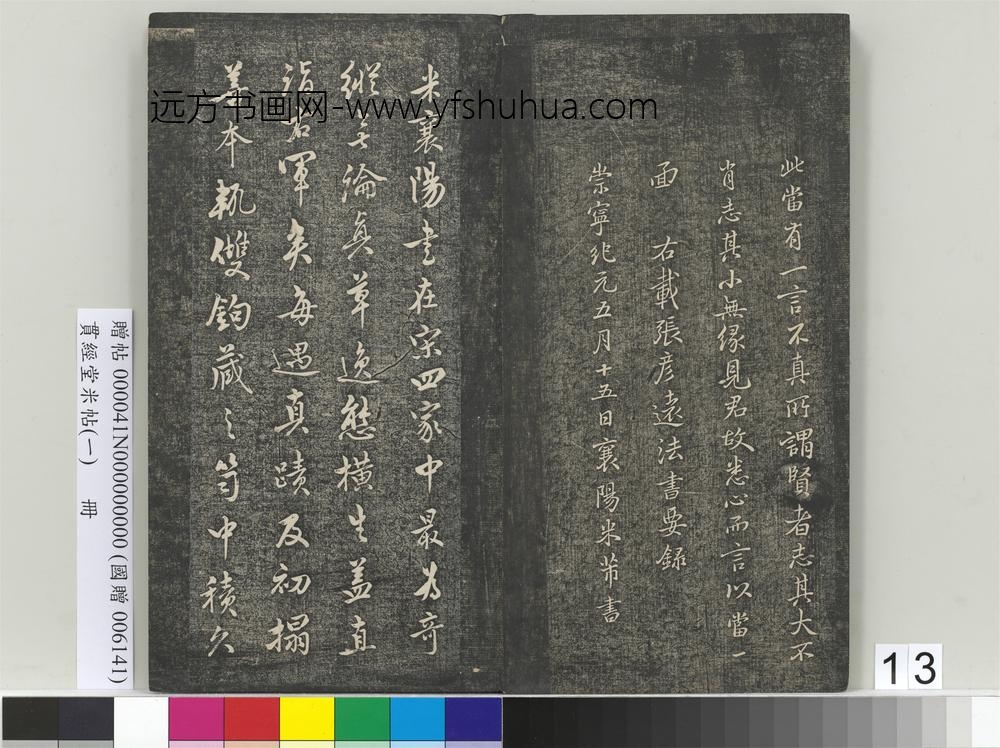 此當有一言不真所謂賢者志其大不
肖志其小無緣見君故悉心而言以當一
面　右載張彥遠法書要錄
崇寧元五月十五日襄陽米芾書
米襄陽書在宋四家中最為奇
縱無論真草逸態橫生蓋直
詣右軍矣每遇真蹟及初搨
善本執雙鉤藏之笥中積久
远方书画网-www.yfshuhua.com
贈帖 000041N000000000 (國贈 006141)
貫經堂米帖(一)　冊
13